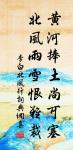 黄河捧土尚可塞
北風雨雪恨難裁
李白北風行詞典網